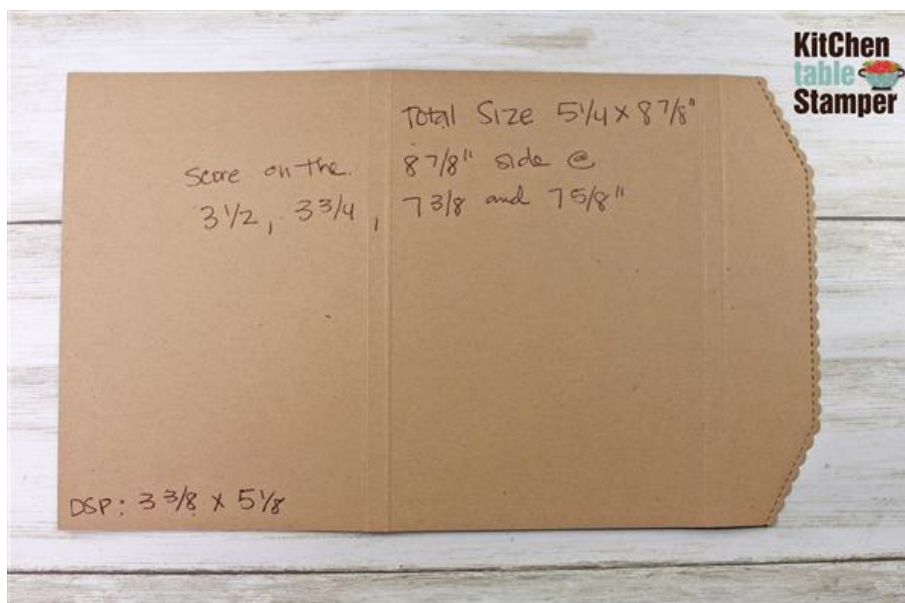 KitChen
table
Stamper
Total Size 5 1/4 x 8 7/8"
Score on the 8 7/8" side @
3 1/2, 3 3/4, 7 3/8 and 7 5/8"
DSP: 3 3/8 x 5 1/8